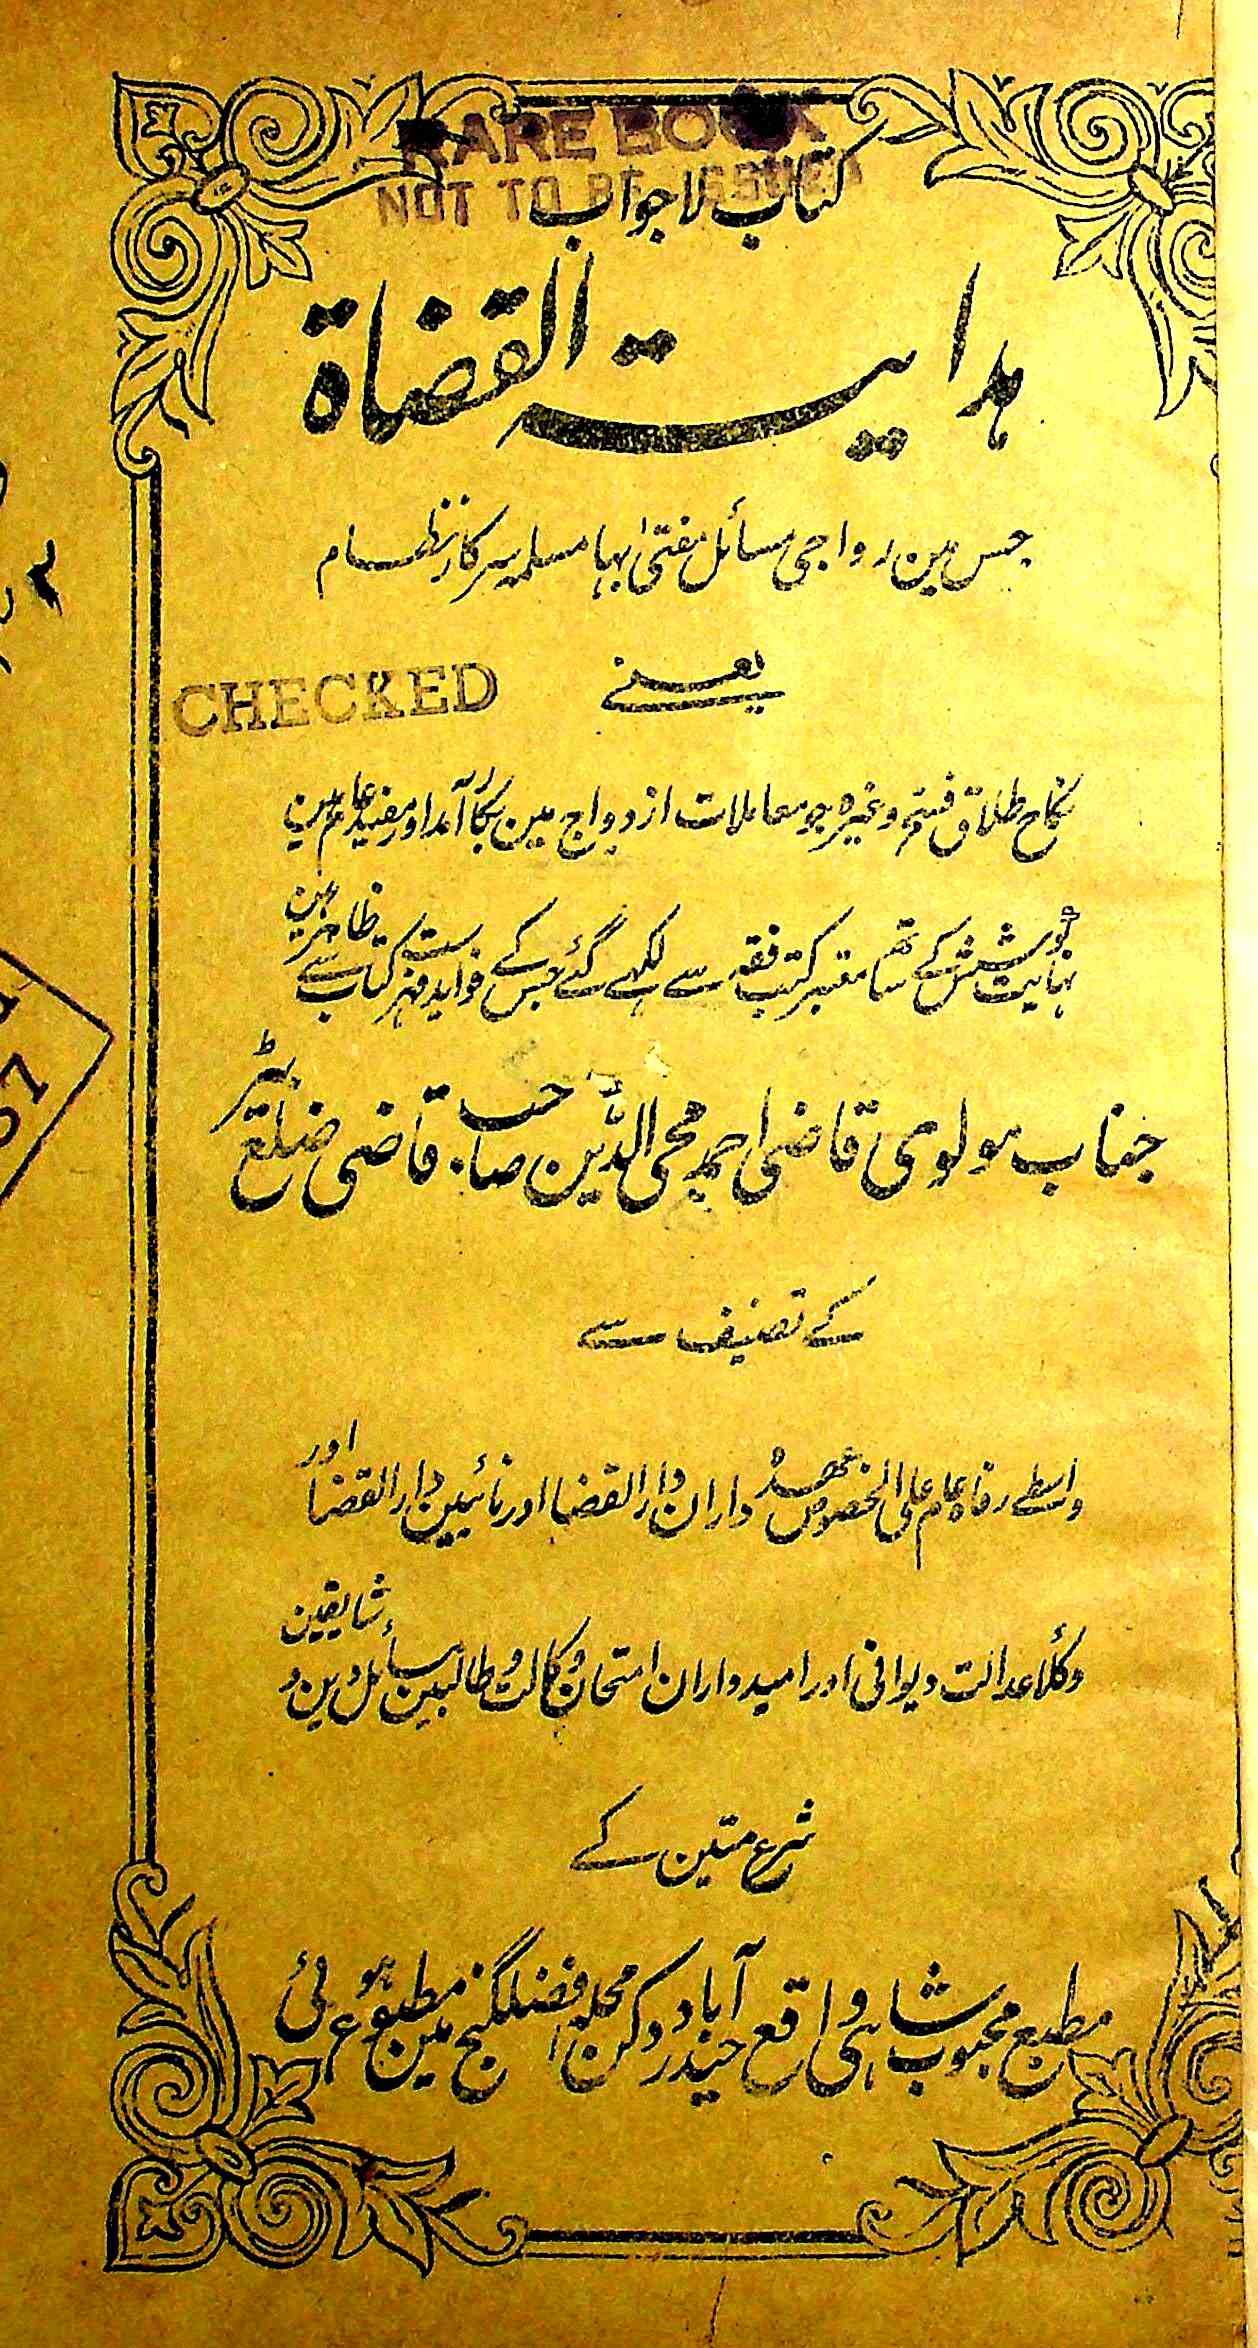 RARE BOOK
NOT TO BE ISSUED
کتاب لاجواب
ہدایت القضاۃ
جس مین رواجی مسائل مفتیٰ بہا مسلمہ سرکار نظام
یعنے
CHECKED
نکاح طلاق وغیرہ جو معاملات ازدواج مین بکار آمد اور مفید عام ہین
نہایت کوشش کے ساتھ معتبر کتب فقہ سے لکھے گئے جس کے فواید فہرست کتاب سے ظاہر ہین
جناب مولوی قاضی احمد محی الدین صاحب قاضی ضلع بیڑ
کے تصنیف سے
واسطے رفاہ عام علی الخصوص عہدہ داران دار القضا اور نائبین دار القضا اور
وکلاء عدالت دیوانی اور امیدواران امتحان وکالت و طالبین مسائل دین و شایقین
شرع متین کے
مطبع محبوب شاہی واقع حیدرآباد دکن محلہ افضلگنج مین مطبوع ہوئی